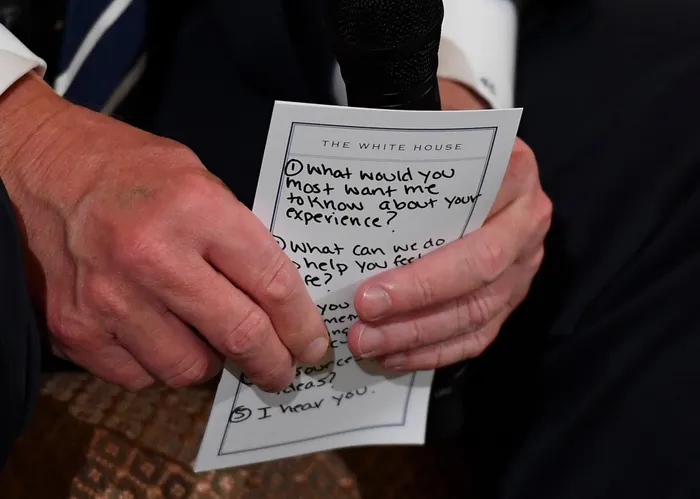 THE WHITE HOUSE
① What would you
most want me
to know about your
experience?
What can we do
help you
?
you
ideas?
⑤ I hear you.